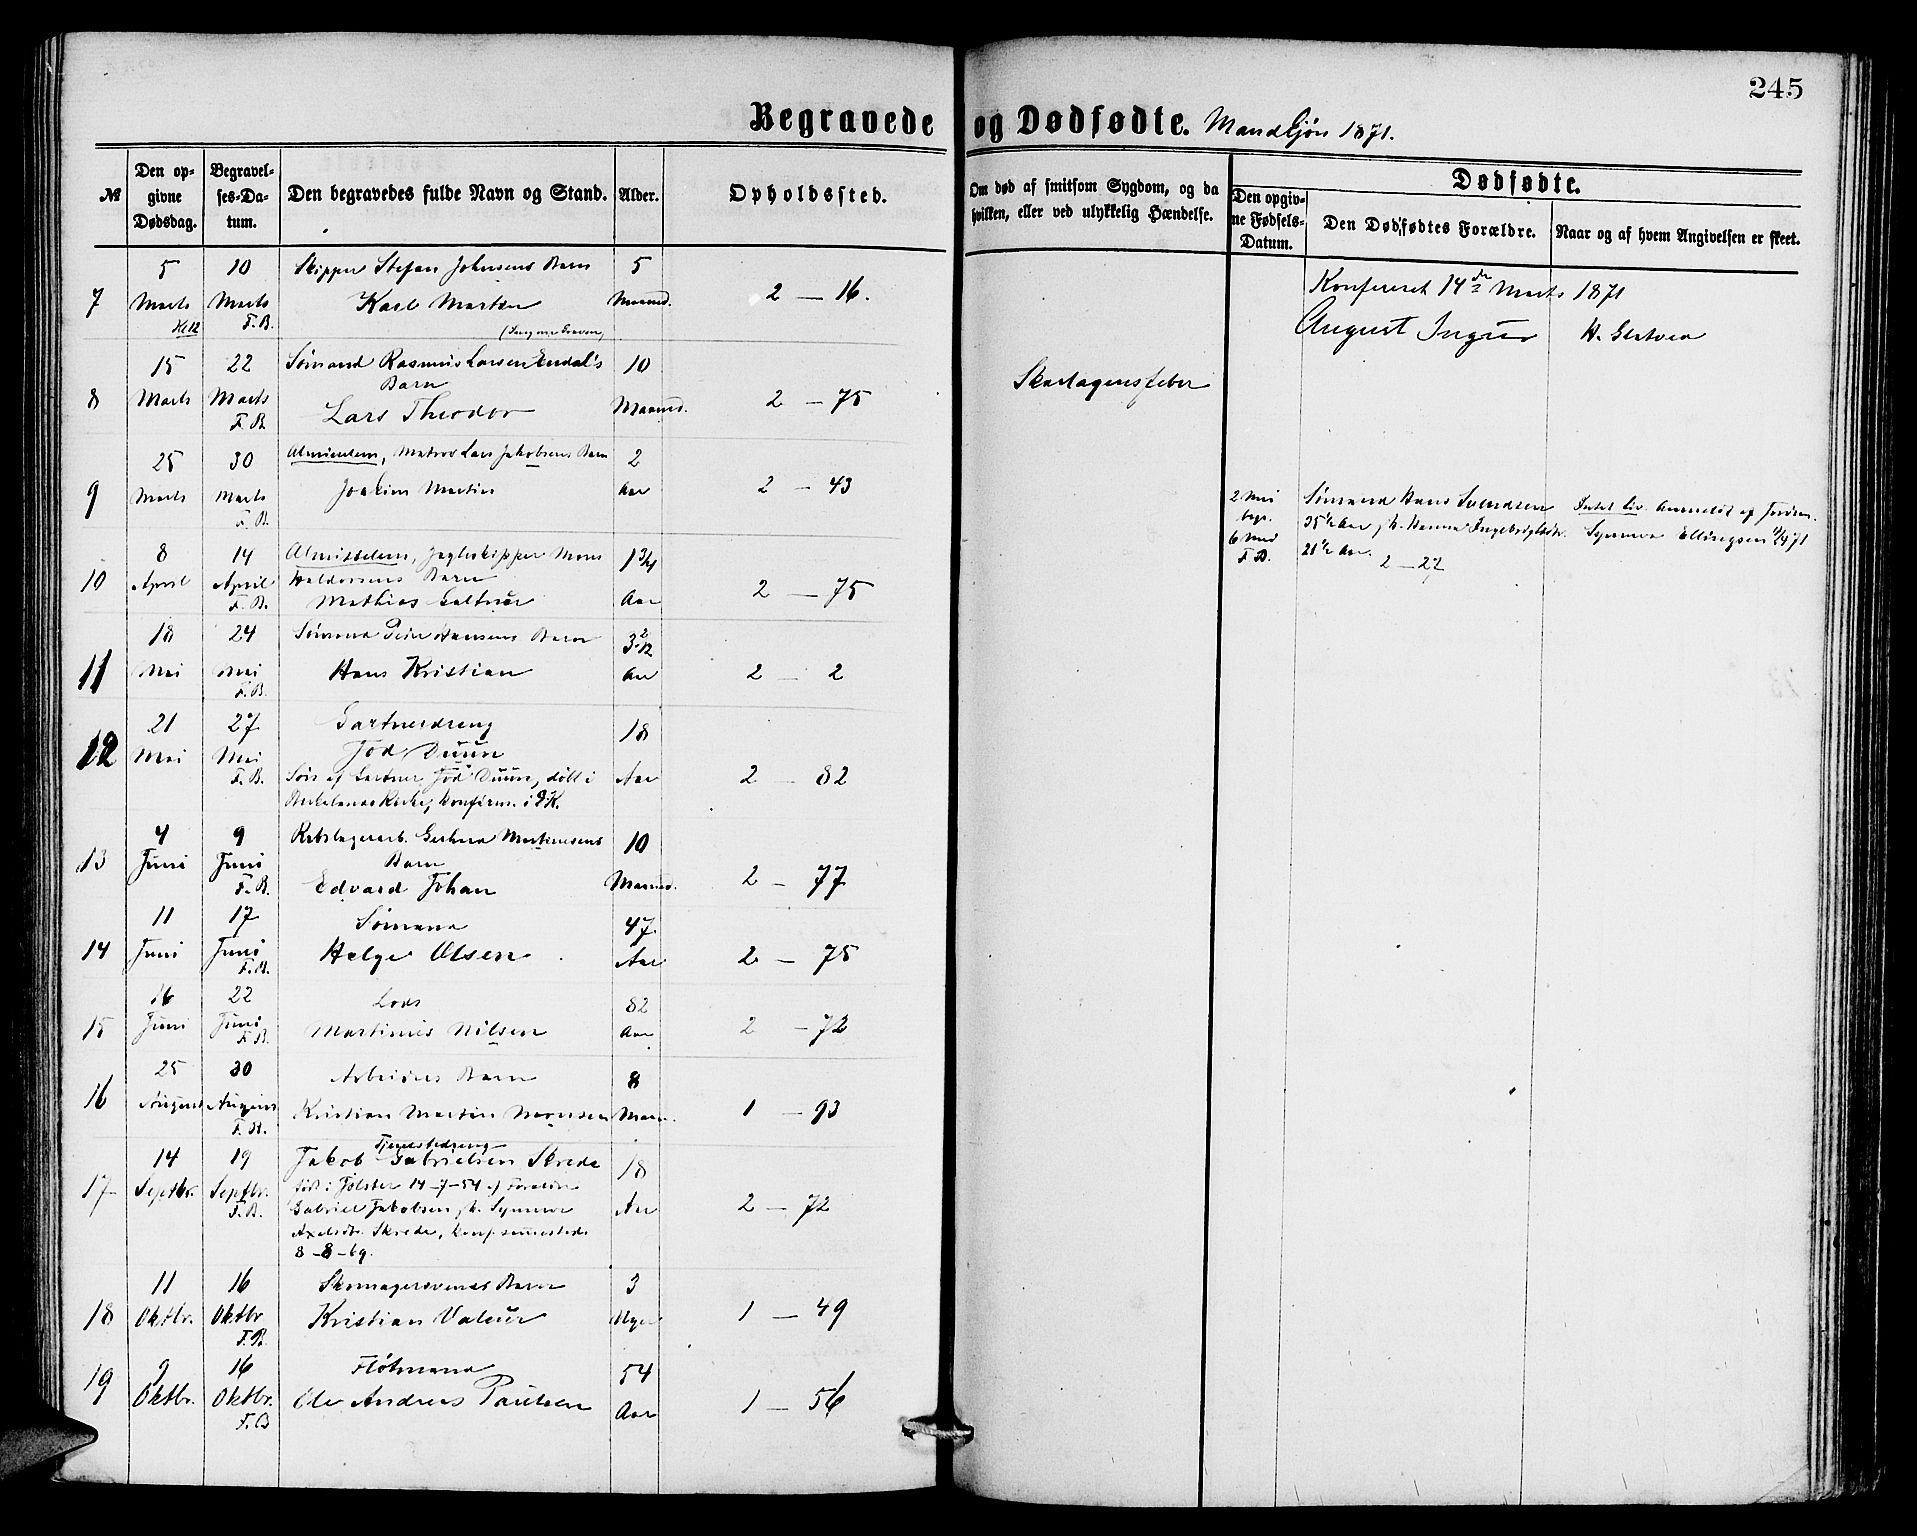 245
Begravede og Dødfødte. Mandkjøn 1871.
№
Den opgivne Dødsdag.
Begravelses-Datum.
Den begravedes fulde Navn og Stand.
Alder.
Opholdssted.
Om død af smitsom Sygdom, og da hvilken, eller ved ulykkelig Hændelse.
Dødfødte.
Den opgivne Fødsels-Datum.
Den Dødfødtes Forældre.
Naar og af hvem Angivelsen er skeet.
7 5 Marts 10 Marts F.B. Skipper Stefan Johnsens Barn
Karl Martin
5 Maaned. 2 — 16.
Konfereret 14de Marts 1871
August
8 15 Marts 22 Marts F.B. Sømand Rasmus Larsen Endal's
Barn
Lars Theodor
10 Maaned. 2 — 75
Skarlagensfeber
9 25 Marts 30 Marts F.B. Matros Lars Jakobsens Barn
Joakim Martin
2 Aar 2 — 43
2 Mai begr. 6 Mai F.B.
Sømand Hans Svendsen
35 1/2 Aar
21 1/2 Aar.
2 — 27
Synneva Ellingsen
10 8 April 14 April F.B. Jagteskipper Mons
Haldorsens Barn
Mathias
1 3/4 Aar 2 — 75
11 18 Mai 24 Mai F.B. Sømand Hansens Barn
Hans Kristian
3 2/12 Aar 2 — 2
12 21 Mai 27 Mai F.B. Gartnerdreng
Duun
Søn af Gartner Duun, døbt i
Kirke, konfirm. i D.K.
18 Aar 2 — 82
13 4 Juni 9 Juni F.B. Rebslagerarb. Martinusens
Barn
Edvard Johan
10 Maaned. 2 — 77
14 11 Juni 17 Juni F.B. Sømand
Helge Olsen
47 Aar 2 — 75
15 16 Juni 22 Juni F.B. Lods
Martinus Nilsen
82 Aar 2 — 72
16 25 August 30 August Arbeiders Barn
Kristian Martin Monsen
8 Maan. 1 — 93
17 14 Septbr. 19 Septbr. F.B. Tjenestedreng
Jakob Gabrielsen Skrede
født i Jølster 14-7-54 af Forældre
Gabriel Jakobsen Synneve
Axelsdtr. Skrede, konf. sammesteds
8-8-69.
18 Aar 2 — 72
18 11 Oktbr. 16 Oktbr F.B. Skomagersvends Barn
Kristian Valeur
3 Uger 1 — 49
19 9 Oktbr. 16 Oktbr. F.B Fløtmand
Ole Andreas Paulsen
54 Aar 1 — 56